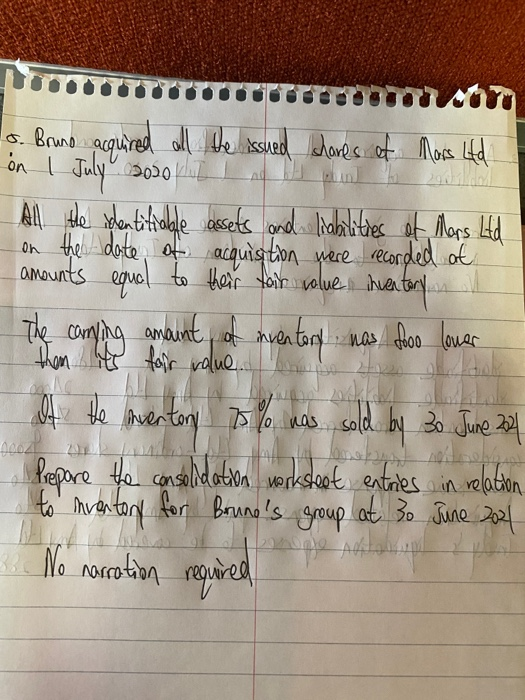 5. Bruno acquired all the issued shares of Mars Ltd
on 1 July 2020
All the identifiable assets and liabilities of Mars Ltd
on the date of acquisition were recorded at
amounts equal to their fair value inventory
The carrying amount of inventory was lower
than its fair value.
Of the inventory 75% was sold by 30 June 2021
Prepare the consolidation worksheet entries in relation
to inventory for Bruno's group at 30 June 2021
No narration required